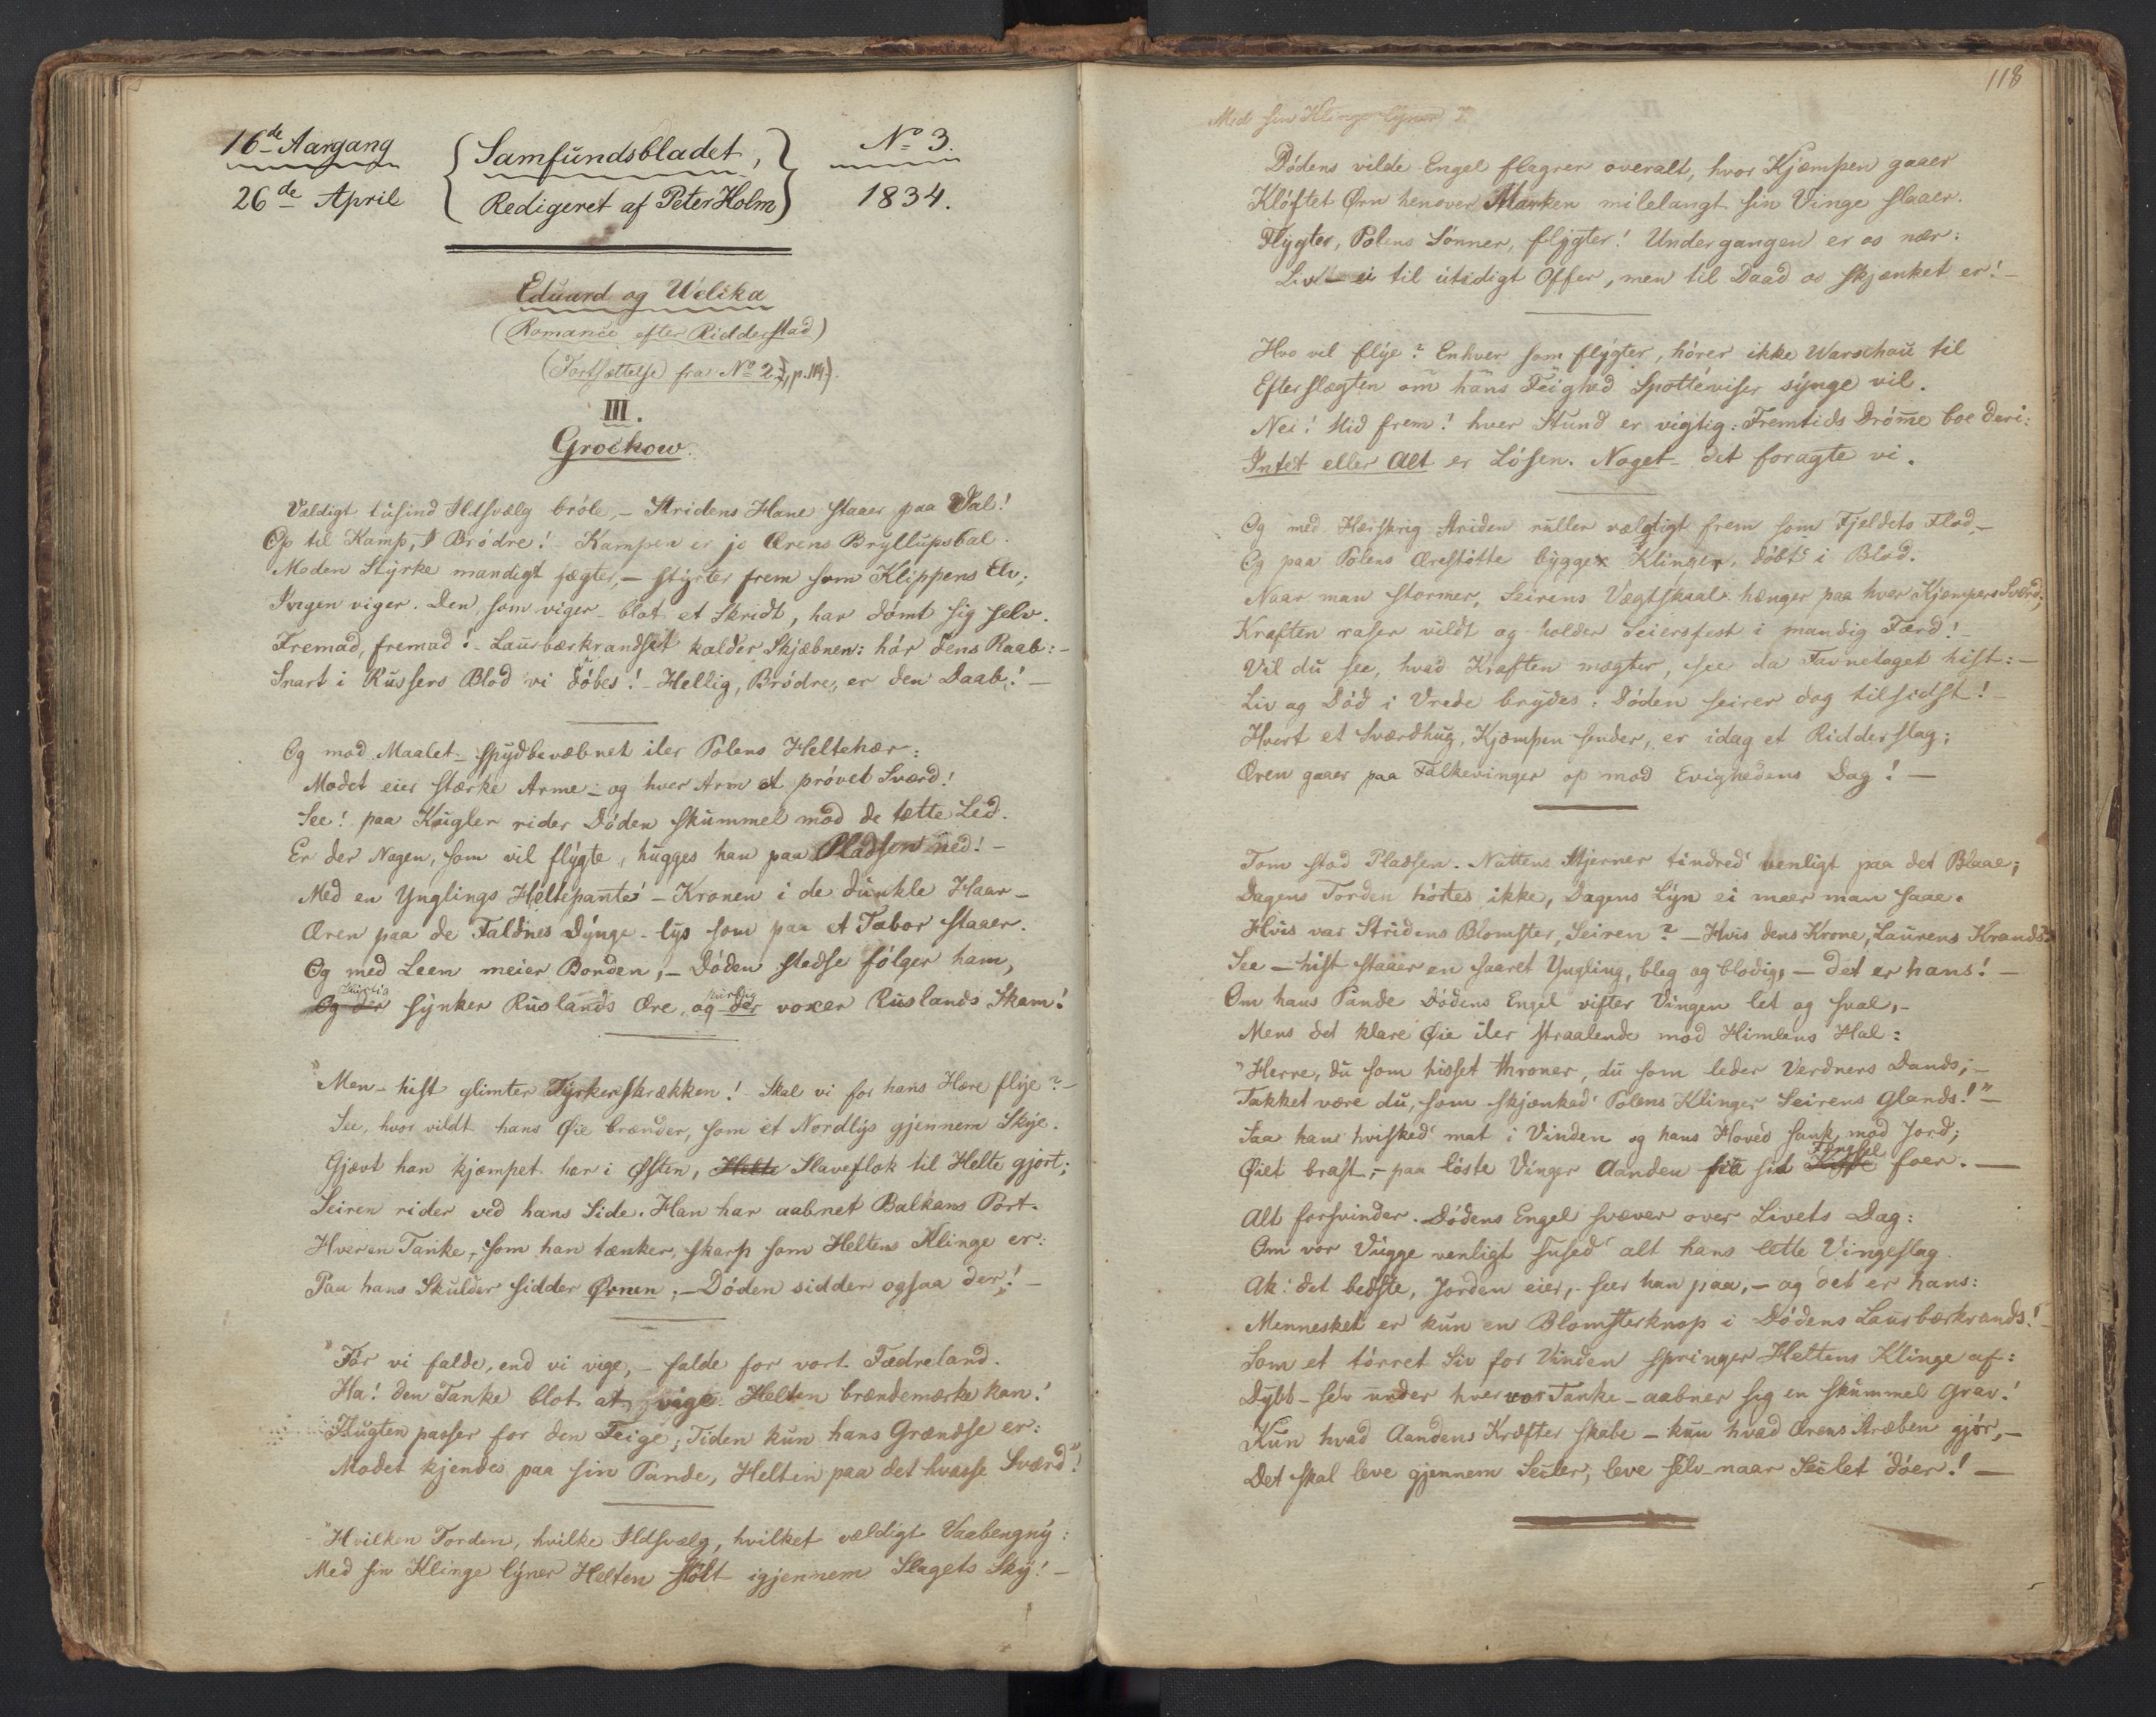 16de Aargang
Samfundsbladet,
No 3.
26de April
Redigeret af Peter Holm
1834.
Eduard og Welika
(Romance efter Ridderstad)
(Fortsættelse fra No 2, p. 114).
III.
Grockow.
Vældigt tusind Ildsvælg brøle, – Stridens Hane staaer paa Val!
Op til Kamp, I Brødre! – Kampen er jo Ærens Bryllupsbal.
Moden Styrke mandigt fægter, – styrter frem som Klippens Elv;
Ingen viger. Den, som viger – blot et Skridt, har dømt sig selv.
Fremad, fremad! – Laurbærkrandset kalder Skjæbnen: hør dens Raab: –
Snart i Russers Blod vi døbes! – Hellig, Brødre, er den Daab! –
Og mod Maalet – spydbevæbnet iler Polens Heltehær:
Modet eier stærke Arme – og hver Arm et prøvet Sværd!
See! paa Kugler rider Døden skummel mod de tætte Led.
Er der Nogen, som vil flygte, hugges han paa Pladsen ned! –
Med en Ynglings Heltepande – Kronen i de dunkle Haar –
Æren paa de Faldnes Dynge – lys som paa et Tabor staaer.
Og med Leen meier Bonden, – Døden stedse følger ham,
Og der synker Ruslands Ære, og der voxer Ruslands Skam!
"Men – hist glimter Tyrkerskrækken! – Skal vi for hans Hære flye? –
See, hvor vildt hans Øie brænder, som et Nordlys gjennem Skye.
Gjævt han kjæmpet har i Østen, Helte Slaveflok til Helte gjort;
Seiren rider ved hans Side. Han har aabnet Balkans Port.
Hver en Tanke, som han tænker, skarp som Heltens Klinge er:
Paa hans Skulder sidder Ørnen; – Døden sidder ogsaa der! –
"Før vi falde, end vi vige, – falde for vort Fædreland.
Ha! den Tanke blot at vige Helten brændemærke kan!
Flugten passer for den Feige; Tiden kun hans Grændse er:
Modet kjendes paa sin Pande, Helten paa det hvasse Sværd"!
"Hvilken Torden, hvilke Ildsvælg, hvilket vældigt Vaabengny:
Med sin Klinge lyner Helten stolt igjennem Slagets Sky! –
118
Med sin Klinge lyner
Dødens vilde Engel flagrer overalt, hvor Kjæmpen gaaer
Kløftet Ørn henover Marken milelangt sin Vinge slaaer.
Flygter, Polens Sønner, flygter! Undergangen er os nær:
Liv – ei til utidigt Offer, men til Daad os skjænket er! –
Hvo vil flye? Enhver som flygter, hører ikke Warschau til
Efterslægten om hans Feighed Spotteviser synge vil.
Nei! Mid frem! hver Stund er vigtig: Fremtids Drømme boe deri:
Intet eller Alt er Løsen. Noget – det foragte vi.
Og med Hærskrig Striden ruller vældigt frem som Fjeldets Flod, –
Og paa Polens Ærestøtte bygge Klinger, døbt' i Blod.
Naar man stormer, Seirens Vægtskaal hænger paa hver Kjæmpers Sværd;
Kraften raser vildt og holder Seiersfest i mandig Færd! –
Vil du see, hvad Kraften mægter, see da Favnetaget hist: –
Liv og Død i Vrede brydes: Døden seirer dog tilsidst! –
Hvert et Sværdhug, Kjæmpen sender, er idag et Ridderslag;
Æren gaaer paa Falkevinger op mod Evighedens Dag! –
Tom stod Pladsen. Nattens Stjerner tindred' venligt paa det Blaae;
Dagens Torden hørtes ikke, Dagens Lyn ei meer man saae.
Hvis var Stridens Blomster, Seiren? – Hvis dens Krone, Laurens Krands?
See – hist staaer en saaret Yngling, bleg og blodig, – det er hans! –
Om hans Pande Dødens Engel vifter Vingen let og sval, –
Mens det klare Øie iler straalende mod Himlens Hal:
"Herre, du som hisset throner, du som leder Verdners Dands; –
Takket være du, som skjænked' Polens Klinger Seirens Glands!" –
Saa han hvisked' mat i Vinden og hans Hoved sank mod Jord;
Fængsel
Øiet brast, – paa løste Vinger Aanden fra sit foer. –
Alt forsvinder. Dødens Engel svæver over Livets Dag:
Om vor Vugge venligt sused' alt hans lette Vingeslag.
Ak! det bedste, Jorden eier, – seer han paa, – og det er hans:
Mennesket er kun en Blomsterknop i Dødens Laurbærkrands! –
Som et tørret Siv for Vinden springer Heltens Klinge af:
Dybt – selv under hver vor Tanke – aabner sig en skummel Grav!
Kun hvad Aandens Kræfter skabe – kun hvad Ærens Stræben gjør, –
Det skal leve gjennem Secler, leve selv naar Seclet døer! –